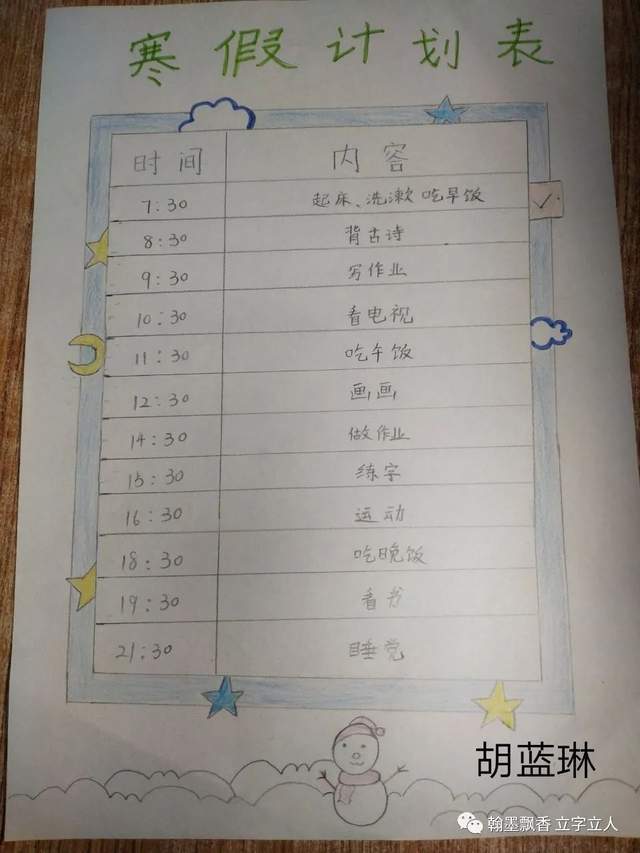 寒假计划表
时间 内容
7:30 起床、洗漱 吃早饭
8:30 背古诗
9:30 写作业
10:30 看电视
11:30 吃午饭
12:30 画画
14:30 做作业
15:30 练字
16:30 运动
18:30 吃晚饭
19:30 看书
21:30 睡觉
胡蓝琳
翰墨飘香 立字立人